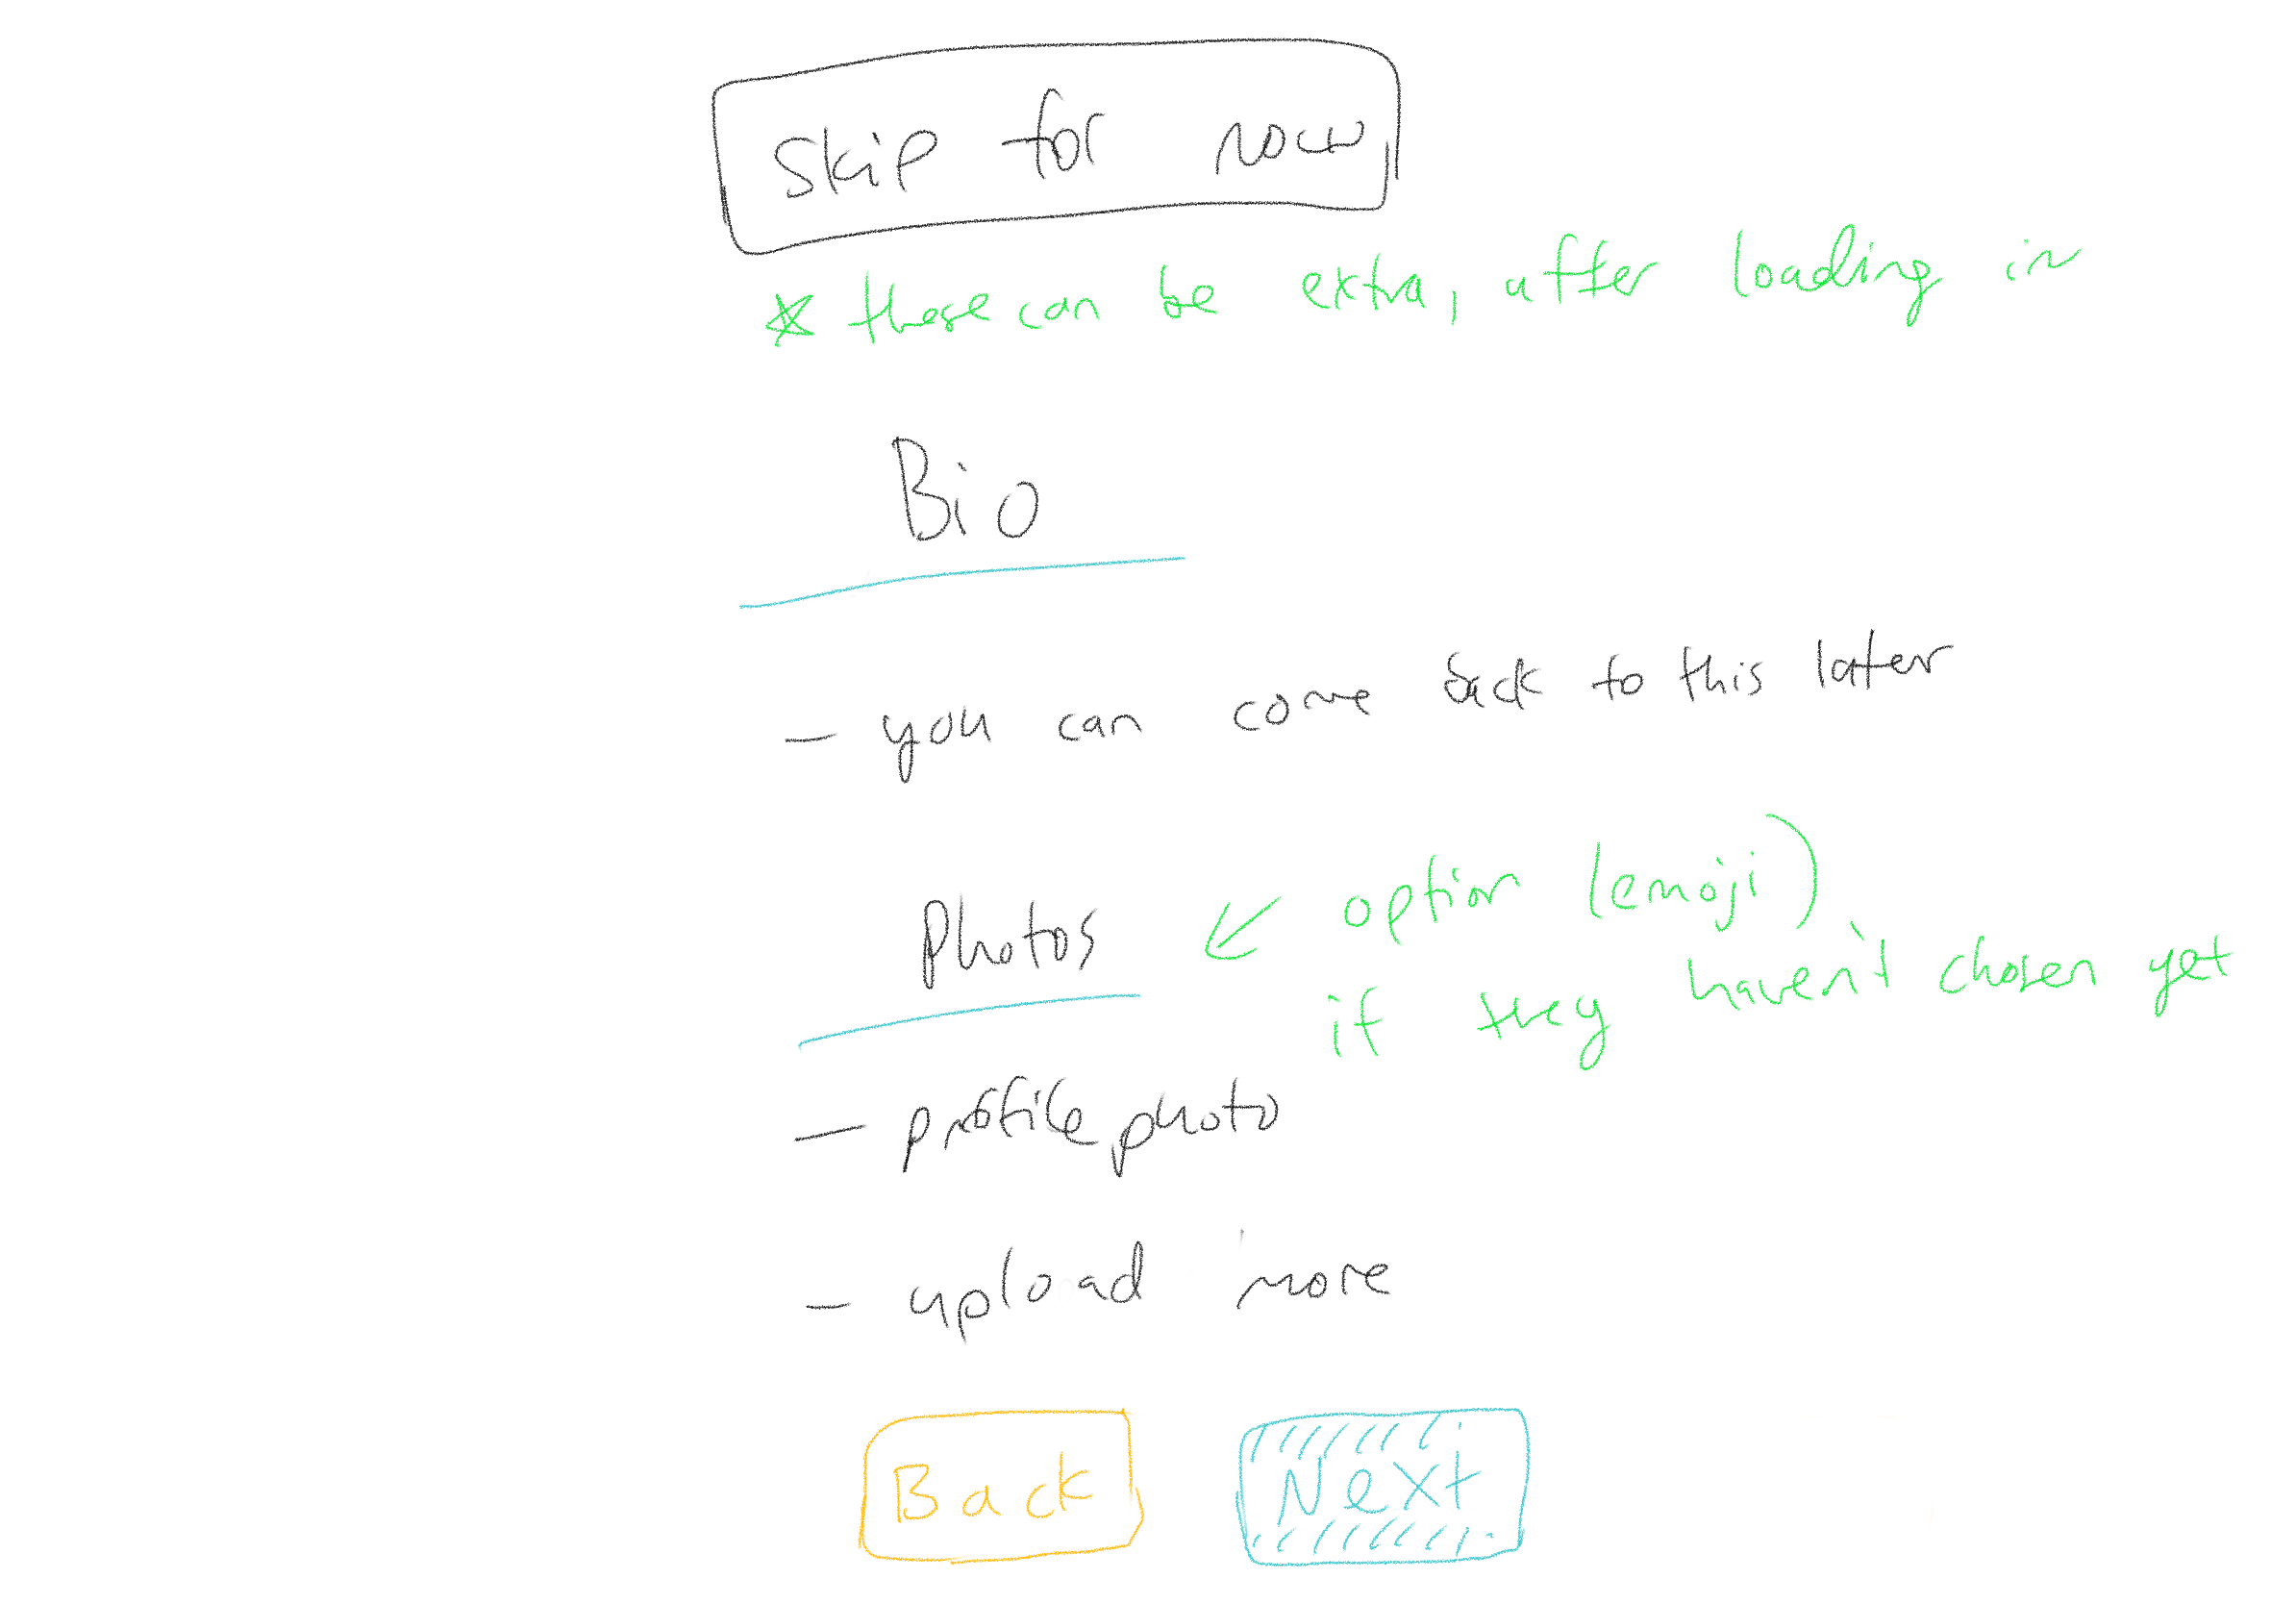 Skip for now
* these can be extra, after loading in
Bio
- you can come back to this later
Photos ← option (emoji)
if they haven't chosen yet
- profile photo
- upload more
Back Next